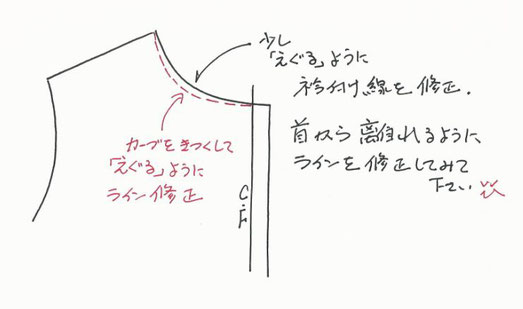 少し
「えぐる」ように
衿付け線を修正.
首から離れるように
ラインを修正してみて
下さい
カーブをきつくして
「えぐる」ように
ライン修正
C.F